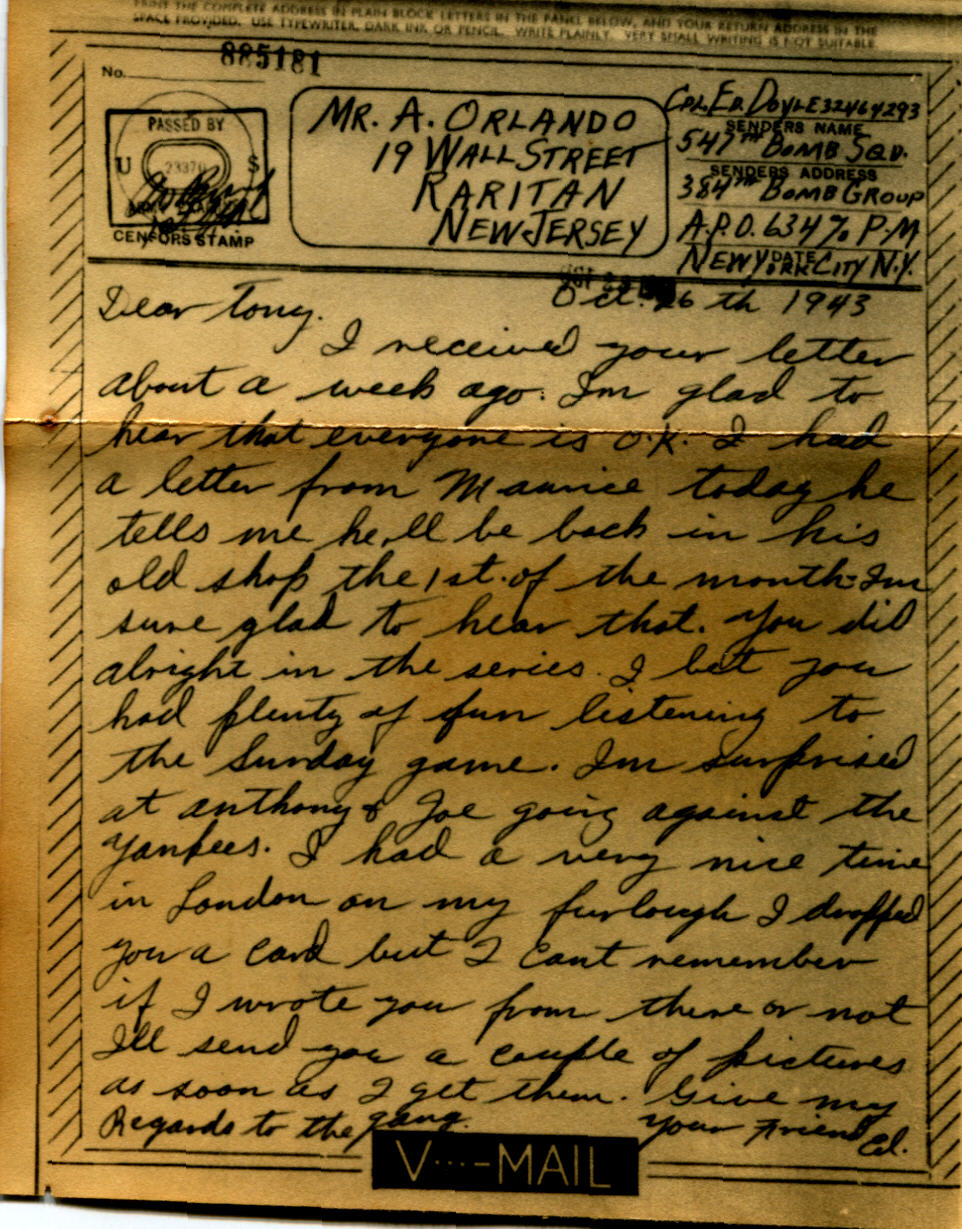 PRINT THE COMPLETE ADDRESS IN PLAIN BLOCK LETTERS IN THE PANEL BELOW, AND YOUR RETURN ADDRESS IN THE
SPACE PROVIDED. USE TYPEWRITER, DARK INK OR PENCIL. WRITE PLAINLY. VERY SMALL WRITING IS NOT SUITABLE.
No. 885181
PASSED BY
U S
CENSORS STAMP
MR. A. ORLANDO
19 WALL STREET
RARITAN
NEW JERSEY
CPL. ED DOYLE 32464293
SENDERS NAME
547TH BOMB SQD.
SENDERS ADDRESS
384TH BOMB GROUP
A.P.O. 634 % P.M
NEW YORK CITY N.Y.
DATE
Oct. 26 th 1943
Dear Tony.
I received your letter
about a week ago. Im glad to
hear that everyone is O.K. I had
a letter from Maurice today he
tells me he,ll be back in his
old shop the 1st. of the month. Im
sure glad to hear that. You did
alright in the series. I bet you
had plenty of fun listening to
the Sunday game. Im surprised
at anthony & Joe going against the
Yankees. I had a very nice time
in London on my furlough I dropped
you a card but I cant remember
if I wrote you from there or not
Ill send you a couple of pictures
as soon as I get them. Give my
Regards to the gang. Your Friend Ed.
V···-MAIL